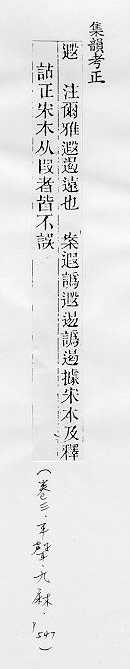 集韻考正
遐 注爾雅遐遏遠也 案遐譌遐逷譌遏據宋本及釋
詁正宋本从叚者皆不誤
(卷三．平聲．九麻．P547)